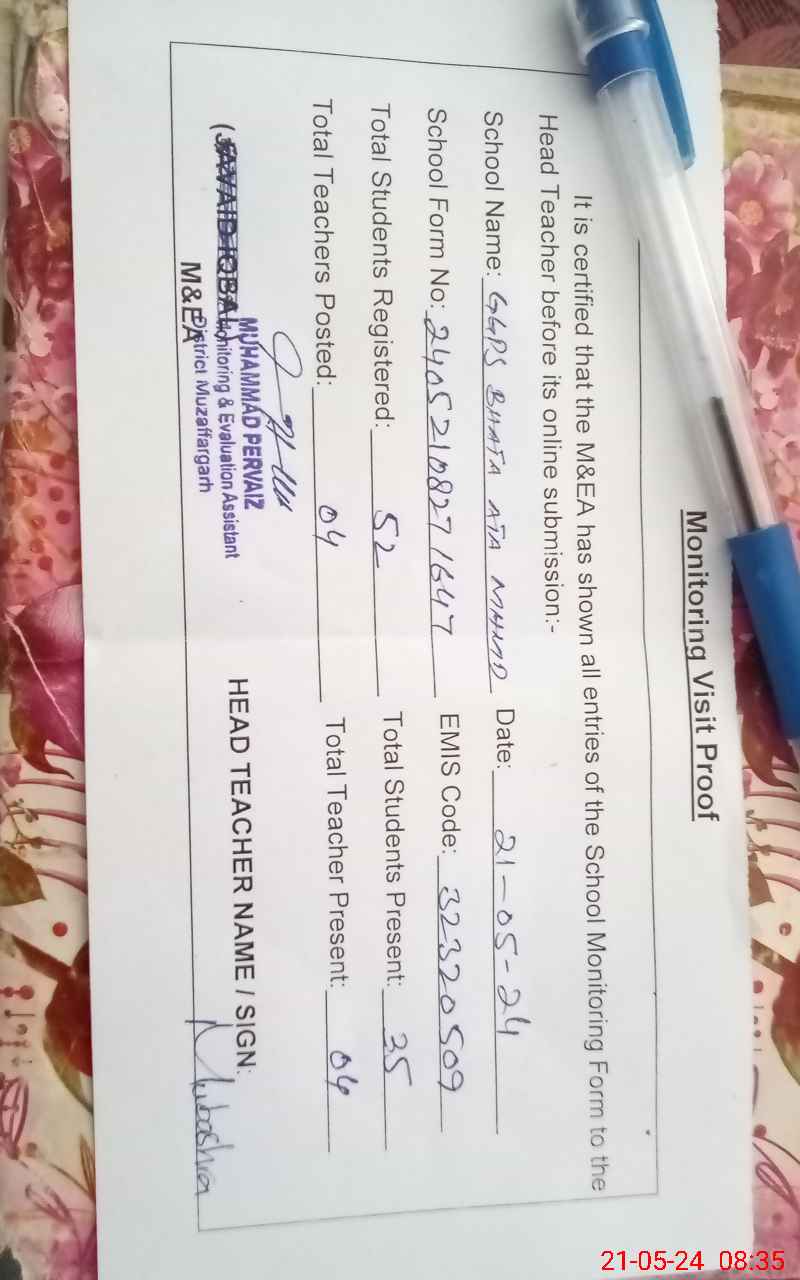 Monitoring Visit Proof
It is certified that the M&EA has shown all entries of the School Monitoring Form to the
Head Teacher before its online submission:-
School Name: GGPS BHATA ATA MHMD Date: 21-05-24
School Form No: 24052108271647 EMIS Code: 32320509
Total Students Registered: 52 Total Students Present: 35
Total Teachers Posted: 04 Total Teacher Present: 04
MUHAMMAD PERVAIZ
Monitoring & Evaluation Assistant
District Muzaffargarh
(JAVAID IQBAL)
M&EA
HEAD TEACHER NAME / SIGN: Mubashra
21-05-24 08:35